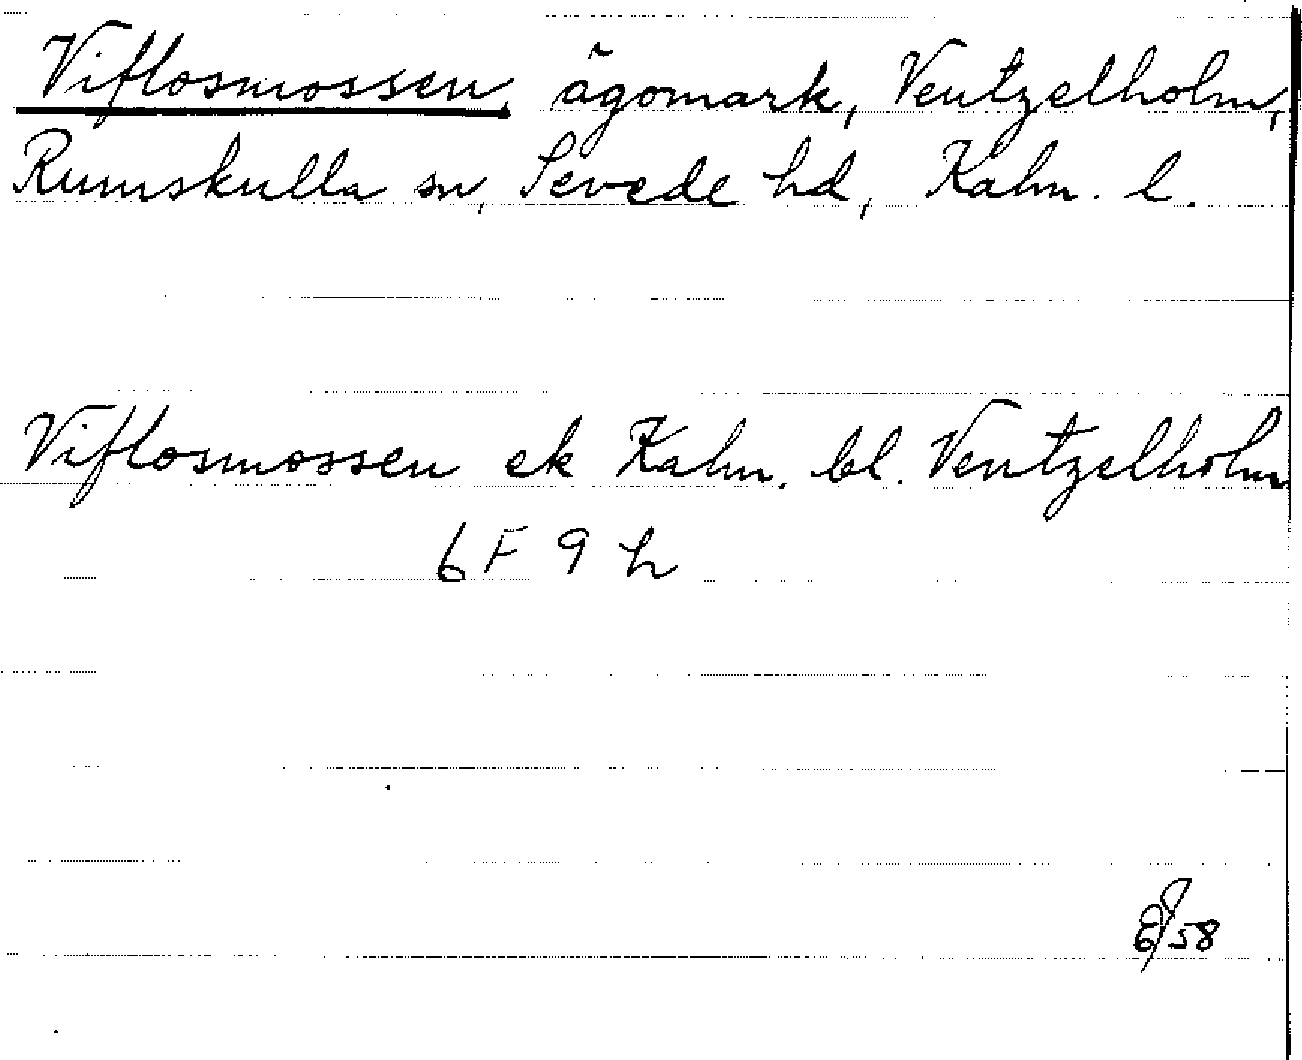 Viflosmossen, ägomark, Ventzelholm,
Rumskulla sn, Sevede hd, Kalm. l.
Viflosmossen ek Kalm. bl. Ventzelholm
6F 9 h
58